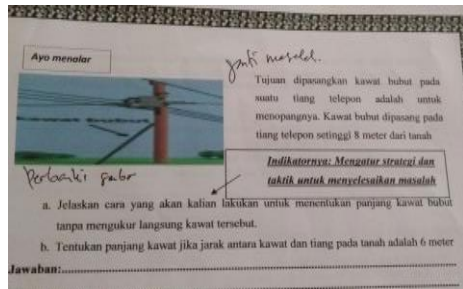 Ayo menalar
ganti masalah.
Tujuan dipasangkan kawat bubut pada
suatu tiang telepon adalah untuk
menopangnya. Kawat bubut dipasang pada
tiang telepon setinggi 8 meter dari tanah
Perbaiki gambar
Indikatornya: Mengatur strategi dan
taktik untuk menyelesaikan masalah
a. Jelaskan cara yang akan kalian lakukan untuk menentukan panjang kawat bubut
tanpa mengukur langsung kawat tersebut.
b. Tentukan panjang kawat jika jarak antara kawat dan tiang pada tanah adalah 6 meter
Jawaban: